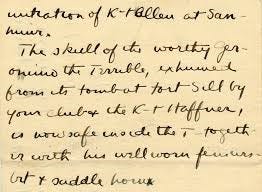 mitration of K-t Allen at San-
mur.
The skull of the worthy Ger-
onimo the Terrible, exhumed
from its tomb at Fort Sill by
your club & the K-t Haffner,
is now safe inside the T- togeth-
er with his well worn femurs
bit & saddle horn.